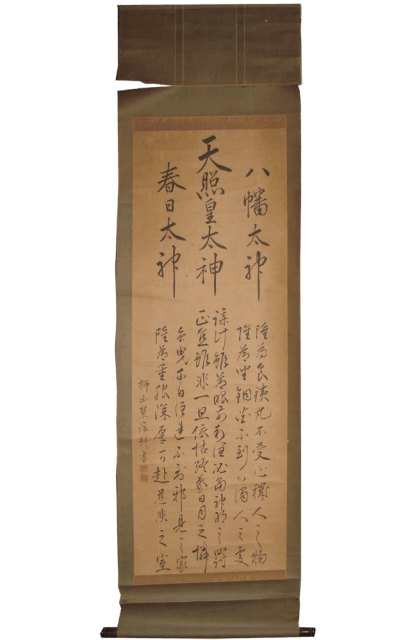 八幡太神
天照皇太神
春日太神
雖為食鐵丸不受心穢人之物
雖為坐銅焔不到心濁人之處
謀計雖為眼前利潤必當神明之罰
正直雖非一旦依怙終蒙日月之憐
雖曳千日注連不到邪見之家
雖為重服深厚可赴慈悲之室